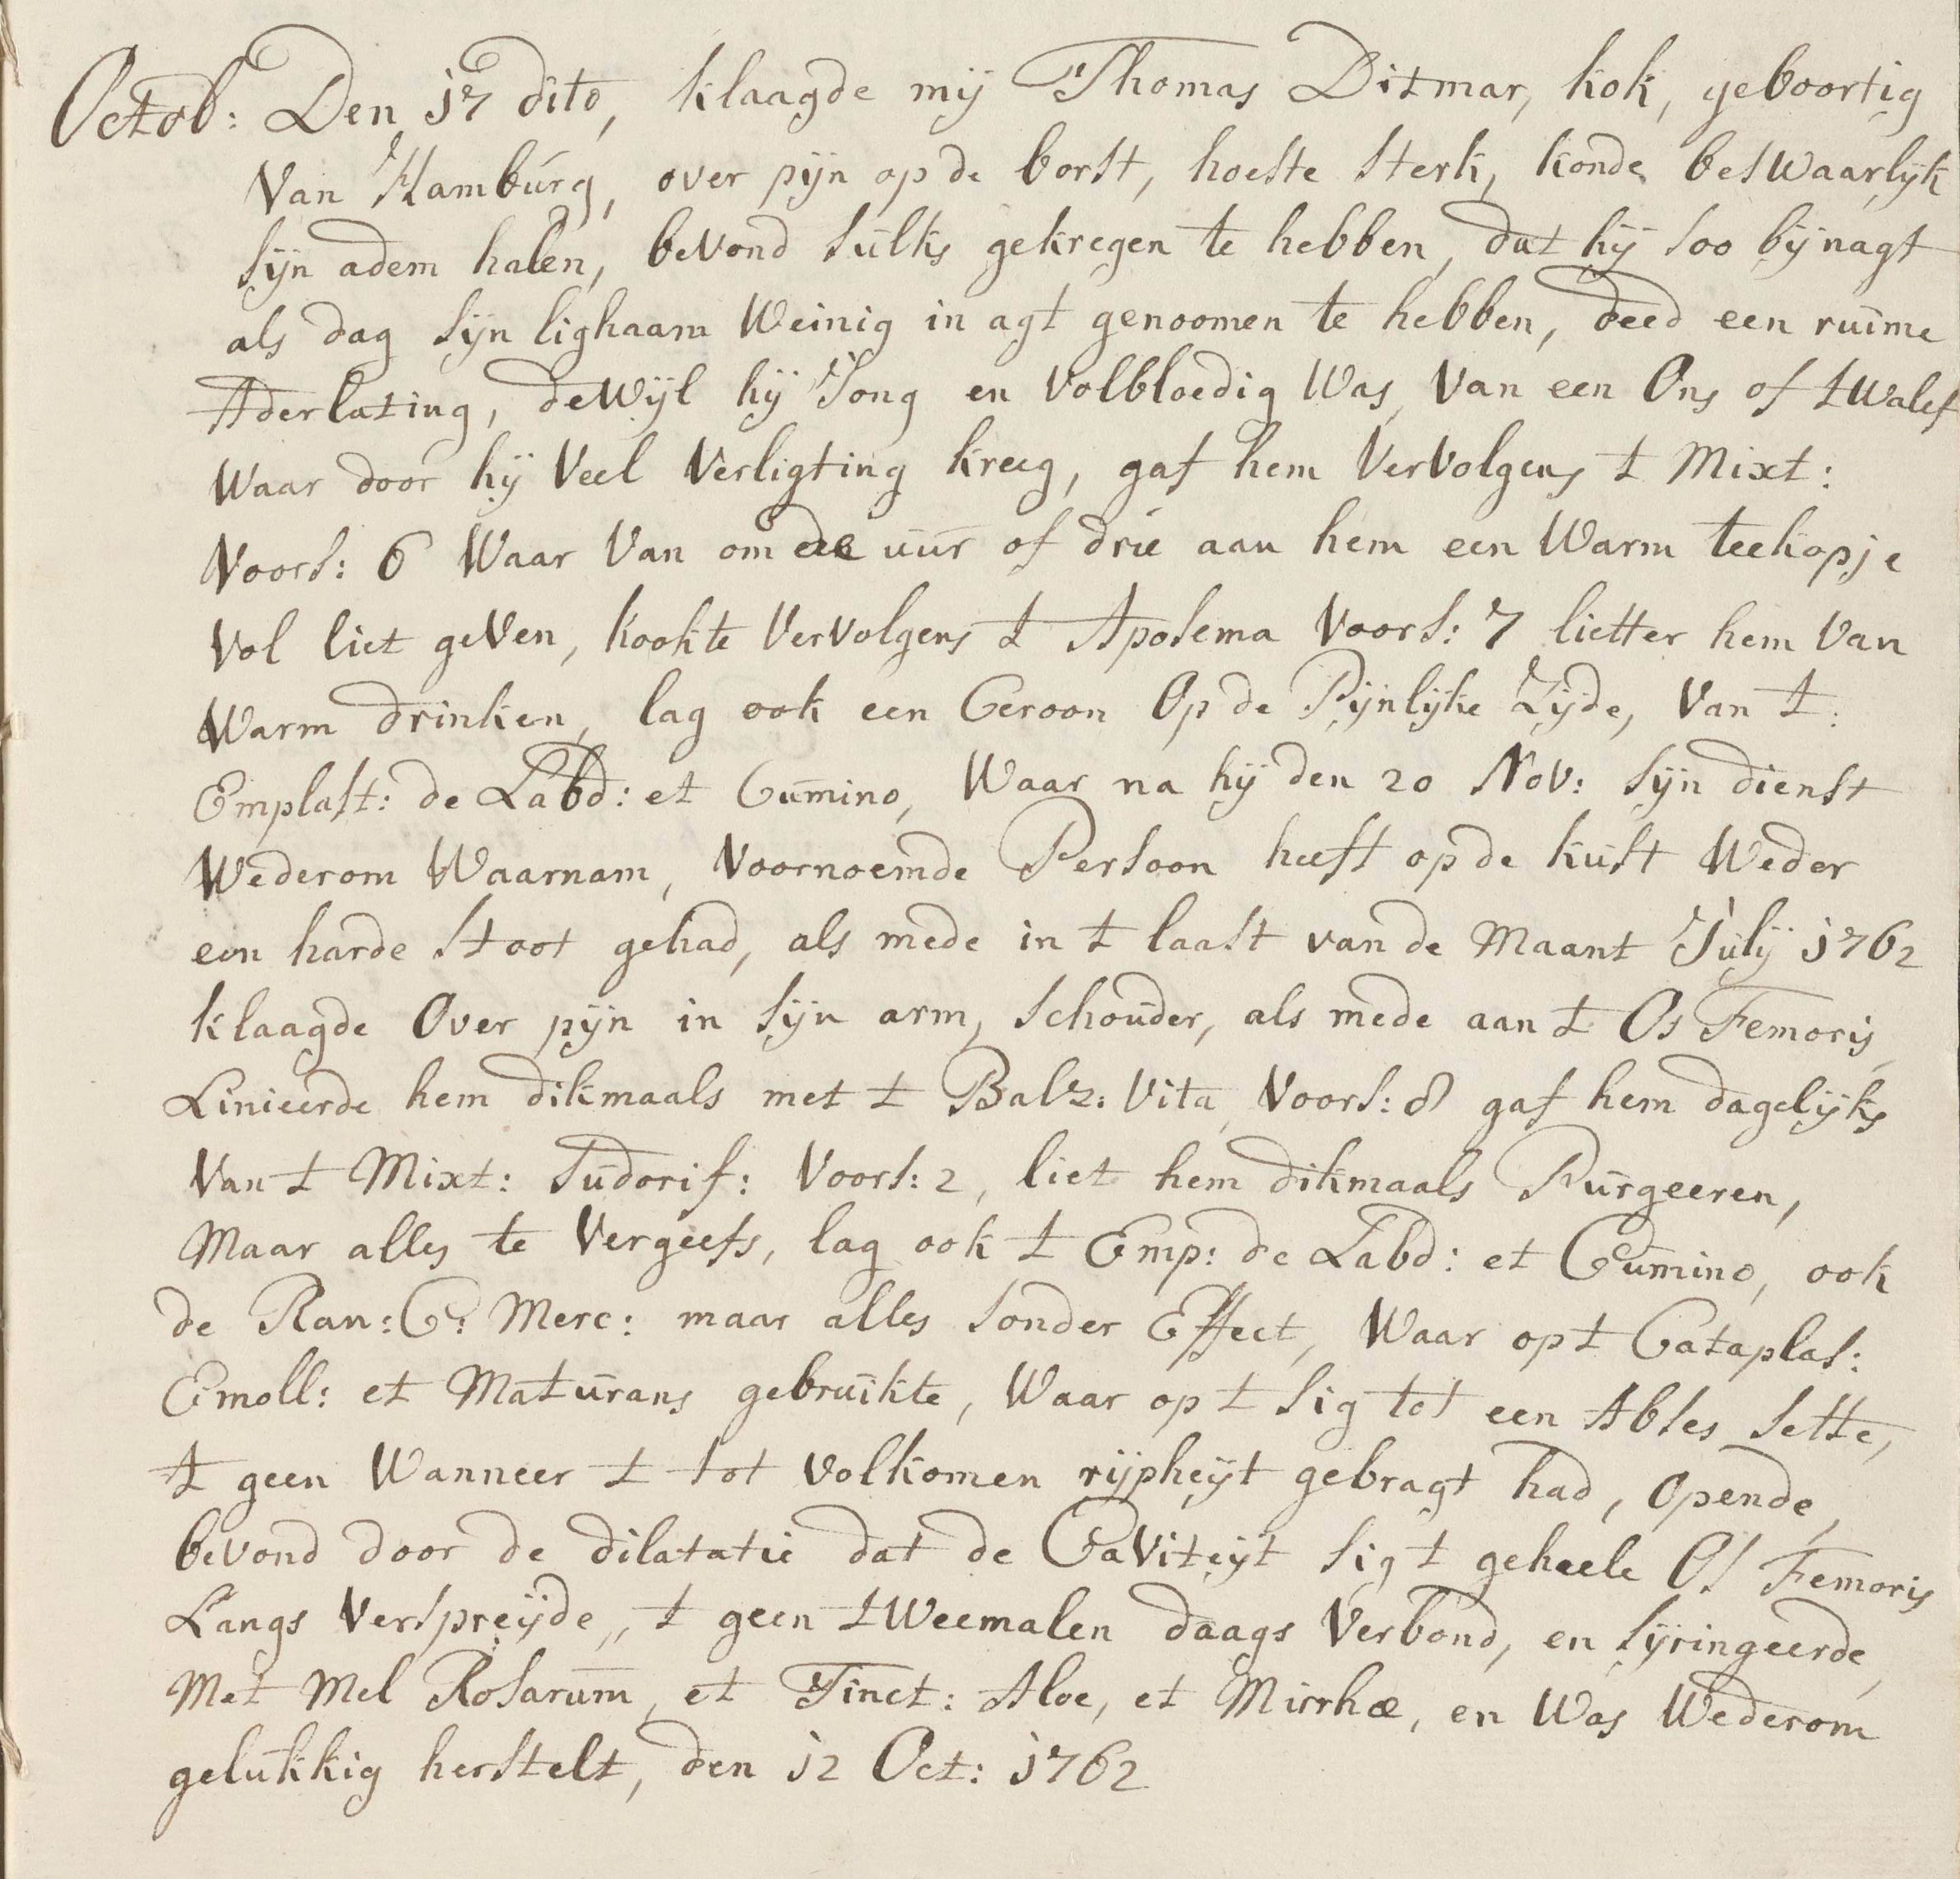 Octob: Den 17 dito, klaagde mij Thomas Ditmar, kok, geboortig
Van Hamburg, over pijn op de borst, hoeste sterk, konde beswaarlijk
sijn adem halen, bevond sulks gekregen te hebben, dat hij soo bij nagt
als dag sijn lighaam Weinig in agt genoomen te hebben, deed een ruime
Aderlating, deWijl hij Jong en Volbloedig Was, Van een Ons of tWalef
Waar door hij Veel Verligting kreeg, gaf hem VerVolgens t Mixt:
Voors: 6 Waar Van om de uur of drie aan hem een Warm teekopje
Vol liet geVen, kookte VerVolgens t Aposema Voors: 7 lietter hem Van
Warm drinken, lag ook een Ceroon Op de Pijnlijke Zijde, Van t:
Emplast: de Labd: et Cumino, Waar na hij den 20 Nov: sijn dienst
Wederom Waarnam, Voornoemde Persoon heeft op de kust Weder
een harde stoot gehad, als mede in t laast van de Maant Julij 1762
klaagde Over pijn in sijn arm, schouder, als mede aan t Os Femoris,
Linieerde hem dikmaals met t Balz: Vita, Voors: 8 gaf hem dagelijks
Van t Mixt: Sudorif: Voors: 2, liet hem dikmaals Purgeeren,
Maar alles te Vergeefs, lag ook t Emp: de Labd: et Cumino, ook
de Ran: C: Merc: maar alles sonder Effect, Waar op t Cataplas:
Emoll: et Maturans gebruikte, Waar op t sig tot een Abses sette,
t geen Wanneer t tot volkomen rijpheijt gebragt had, Opende,
bevond door de dilatatie dat de CaViteijt sig t geheele Os Femoris
Langs Verspreijde,, t geen tWeemalen daags Verbond, en sijringeerde,
Met Mel Rosarum, et Tinct: Aloe, et Mirrhæ, en Was Wederom
gelukkig herstelt, den 12 Oct: 1762